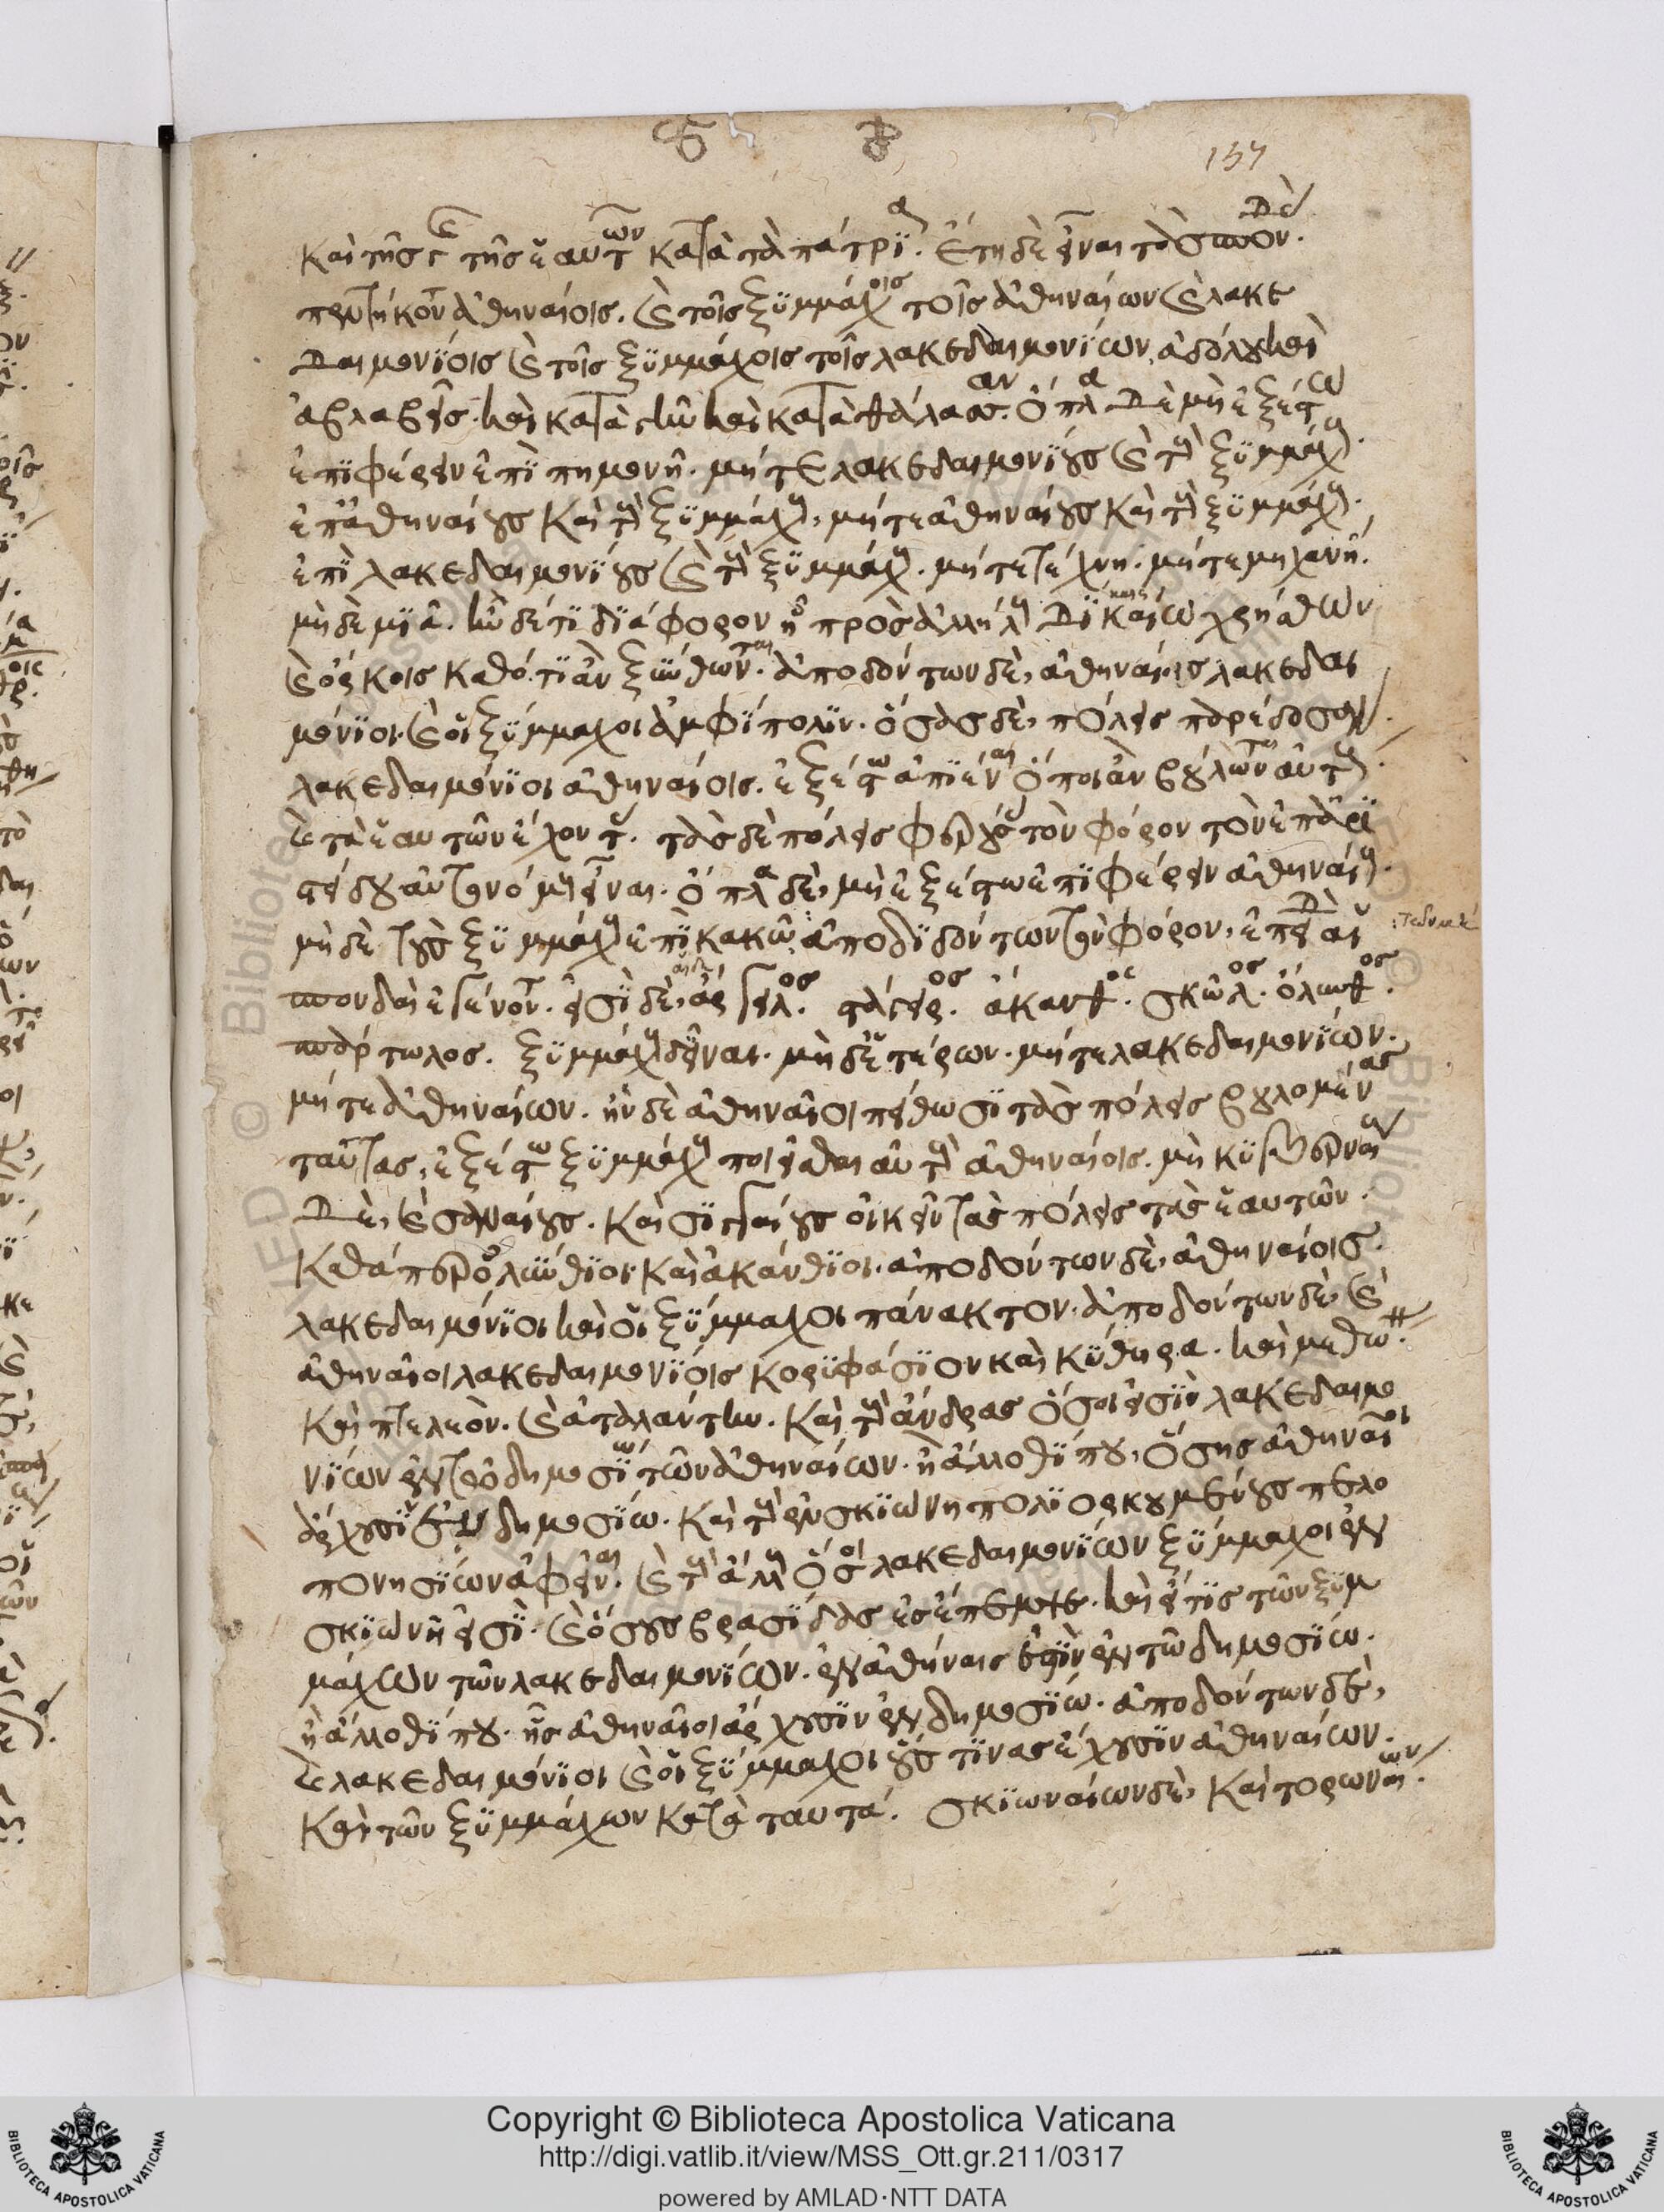 157
καὶ τῆς γῆς τῆς ἑαυτῶν κατὰ τὰ πάτρια. ἔτη δὲ εἶναι τὰς σπονδὰς
πεντήκοντα ἀθηναίοις. καὶ τοῖς ξυμμάχοις τοῖς ἀθηναίων καὶ λακε
δαιμονίοις καὶ τοῖς ξυμμάχοις τοῖς λακεδαιμονίων, ἀδόλους καὶ
ἀβλαβεῖς. καὶ κατὰ γῆν καὶ κατὰ θάλασσαν. ὅπλα δὲ μὴ ἐξέστω
ἐπιφέρειν ἐπὶ πημονῇ. μήτε λακεδαιμονίους καὶ τοὺς ξυμμάχους.
ἐπ' ἀθηναίους καὶ τοὺς ξυμμάχους, μήτε ἀθηναίους καὶ τοὺς ξυμμάχους.
ἐπὶ λακεδαιμονίους καὶ τοὺς ξυμμάχους. μήτε τέχνη. μήτε μηχανῆ.
μηδεμιᾶ. ἢν δέ τι διάφορον ἦ πρὸς ἀλλήλους δικαίω χρήσθων
καὶ ὅρκοις καθότι ἂν ξυνθῶνται. ἀποδόντων δὲ, ἀθηναίοις λακεδαι
μόνιοι καὶ οἱ ξύμμαχοι ἀμφίπολιν. ὅσας δὲ, πόλεις παρέδοσαν.
λακεδαιμόνιοι ἀθηναίοις. ἐξέστω ἀπιέναι ὅποι ἂν βούλωνται αὐτοὺς
καὶ τὰ ἑαυτῶν ἔχοντας. τὰς δὲ πόλεις φερούσας τὸν φόρον τὸν ἐπ' ἀρι
στείδου αὐτονόμους εἶναι. ὅπλα δὲ, μὴ ἐξέστω ἐπιφέρειν ἀθηναίους.
μηδὲ τοὺς ξυμμάχους ἐπὶ κακῶ ἀποδιδόντων τὸν φόρον, ἐπειδὴ αἱ
σπονδαὶ ἐγένοντο. εἰσὶ δὲ, ἄργιλος. στάγειρος. ἄκανθος. σκῶλος. ὄλυνθος.
σπάρτωλος. ξυμμάχους δ' εἶναι. μηδετέρων. μήτε λακεδαιμονίων.
μήτε ἀθηναίων. ἢν δὲ ἀθηναῖοι πείθωσι τὰς πόλεις βουλομένας
ταύτας, ἐξέστω ξυμμάχους ποιεῖσθαι αὐτοὺς ἀθηναίοις. μηκυβερναίους
δὲ, καὶ σαναίους. καὶ σιγγαίους οἰκεῖν τὰς πόλεις τὰς ἑαυτῶν.
καθάπερ ὀλύνθιοι καὶ ἀκάνθιοι. ἀποδόντων δὲ, ἀθηναίοις.
λακεδαιμόνιοι καὶ οἱ ξύμμαχοι πάνακτον. ἀποδόντων δὲ, καὶ
ἀθηναῖοι λακεδαιμονίοις κορυφάσιον καὶ κύθηρα. καὶ μεθώνην.
καὶ πτελεὸν. καὶ ἀταλάντην. καὶ τοὺς ἄνδρας ὅσοι εἰσὶ λακεδαιμο
νίων ἐν τῶ δημοσίω τῶν ἀθηναίων. ἢ ἄλλοθί που, ὅσης ἀθηναῖοι
ἄρχουσιν ἐν δημοσίω. καὶ τοὺς ἐν σκιώνη πολιορκουμένους πελο
πονησίων ἀφεῖναι. καὶ τοὺς ἄλλους ὅσοι λακεδαιμονίων ξύμμαχοι ἐν
σκιώνη εἰσὶ. καὶ ὅσους βρασίδας ἐσέπεμψε. καὶ εἴ τις τῶν ξυμ
μάχων τῶν λακεδαιμονίων. ἐν ἀθήναις ἐστὶν ἐν τῶ δημοσίω.
ἢ ἄλλοθί που. ἧς ἀθηναῖοι ἄρχουσιν ἐν δημοσίω. ἀποδόντων δὲ,
καὶ λακεδαιμόνιοι καὶ οἱ ξύμμαχοι οὕς τινας ἔχουσιν ἀθηναίων.
καὶ τῶν ξυμμάχων κατὰ ταυτά. σκιωναίων δὲ, καὶ τορωναίων.
Copyright © Biblioteca Apostolica Vaticana
http://digi.vatlib.it/view/MSS_Ott.gr.211/0317
powered by AMLAD·NTT DATA
BIBLIOTECA APOSTOLICA VATICANA
BIBLIOTECA APOSTOLICA VATICANA